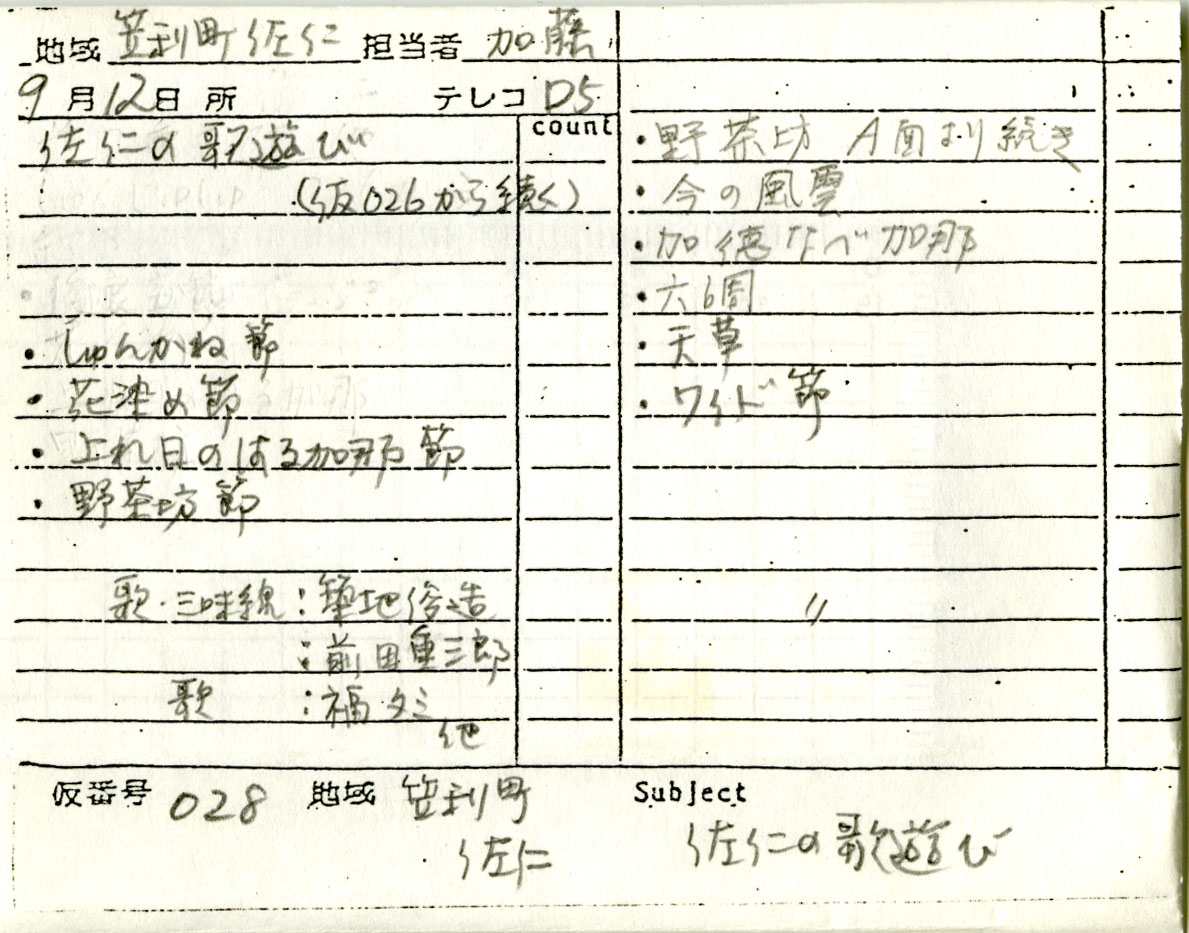 地域 笠利町佐仁 担当者 加藤
9月12日 所 テレコ D5
count
佐仁の歌遊び
(仮026から続く)
・しゅんかね節
・花染め節
・上れ日のはる加那節
・野茶坊節
歌・三味線：築地俊造
：前田重三郎
歌：福タミ
他
・野茶坊 A面より続き
・今の風雲
・加徳なべ加那
・六調
・天草
・ワイド節
〃
仮番号 028 地域 笠利町
佐仁
Subject
佐仁の歌遊び